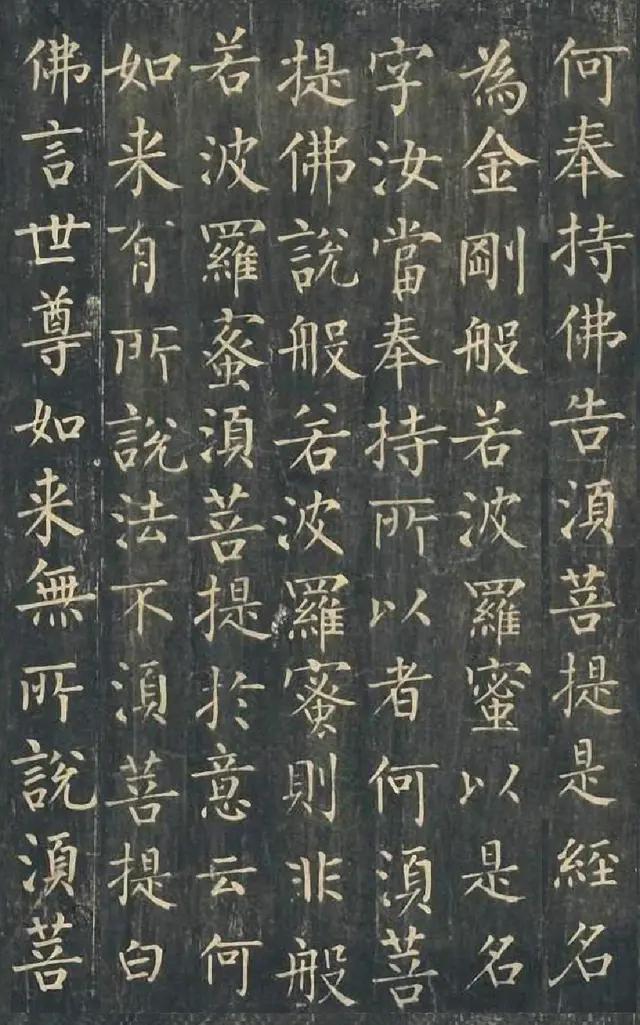 何奉持佛告須菩提是經名
為金剛般若波羅蜜以是名
字汝當奉持所以者何須菩
提佛說般若波羅蜜則非般
若波羅蜜須菩提於意云何
如来有所說法不須菩提白
佛言世尊如来無所說須菩